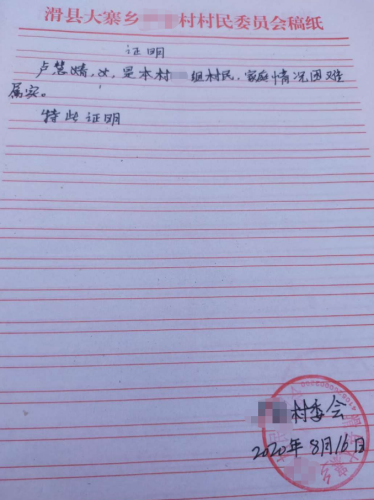 滑县大寨乡 村村民委员会稿纸
证明
卢慧婧,女,是本村 组村民,家庭情况困难
属实。
特此证明
村委会
2020年8月16日